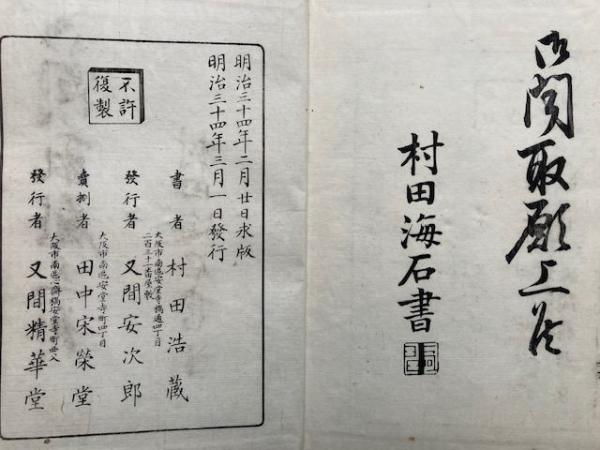 御聞取願上候
村田海石書
明治三十四年二月廿日求版
明治三十四年三月一日發行
不許
復製
書者 村田浩蔵
大阪市南區安堂寺橋通四丁目
二百三十一番屋敷
發行者 又間安次郎
大阪市南區安堂寺町四丁目
賣捌者 田中宋榮堂
大阪市南區心齋橋安堂寺町南入
發行者 又間精華堂